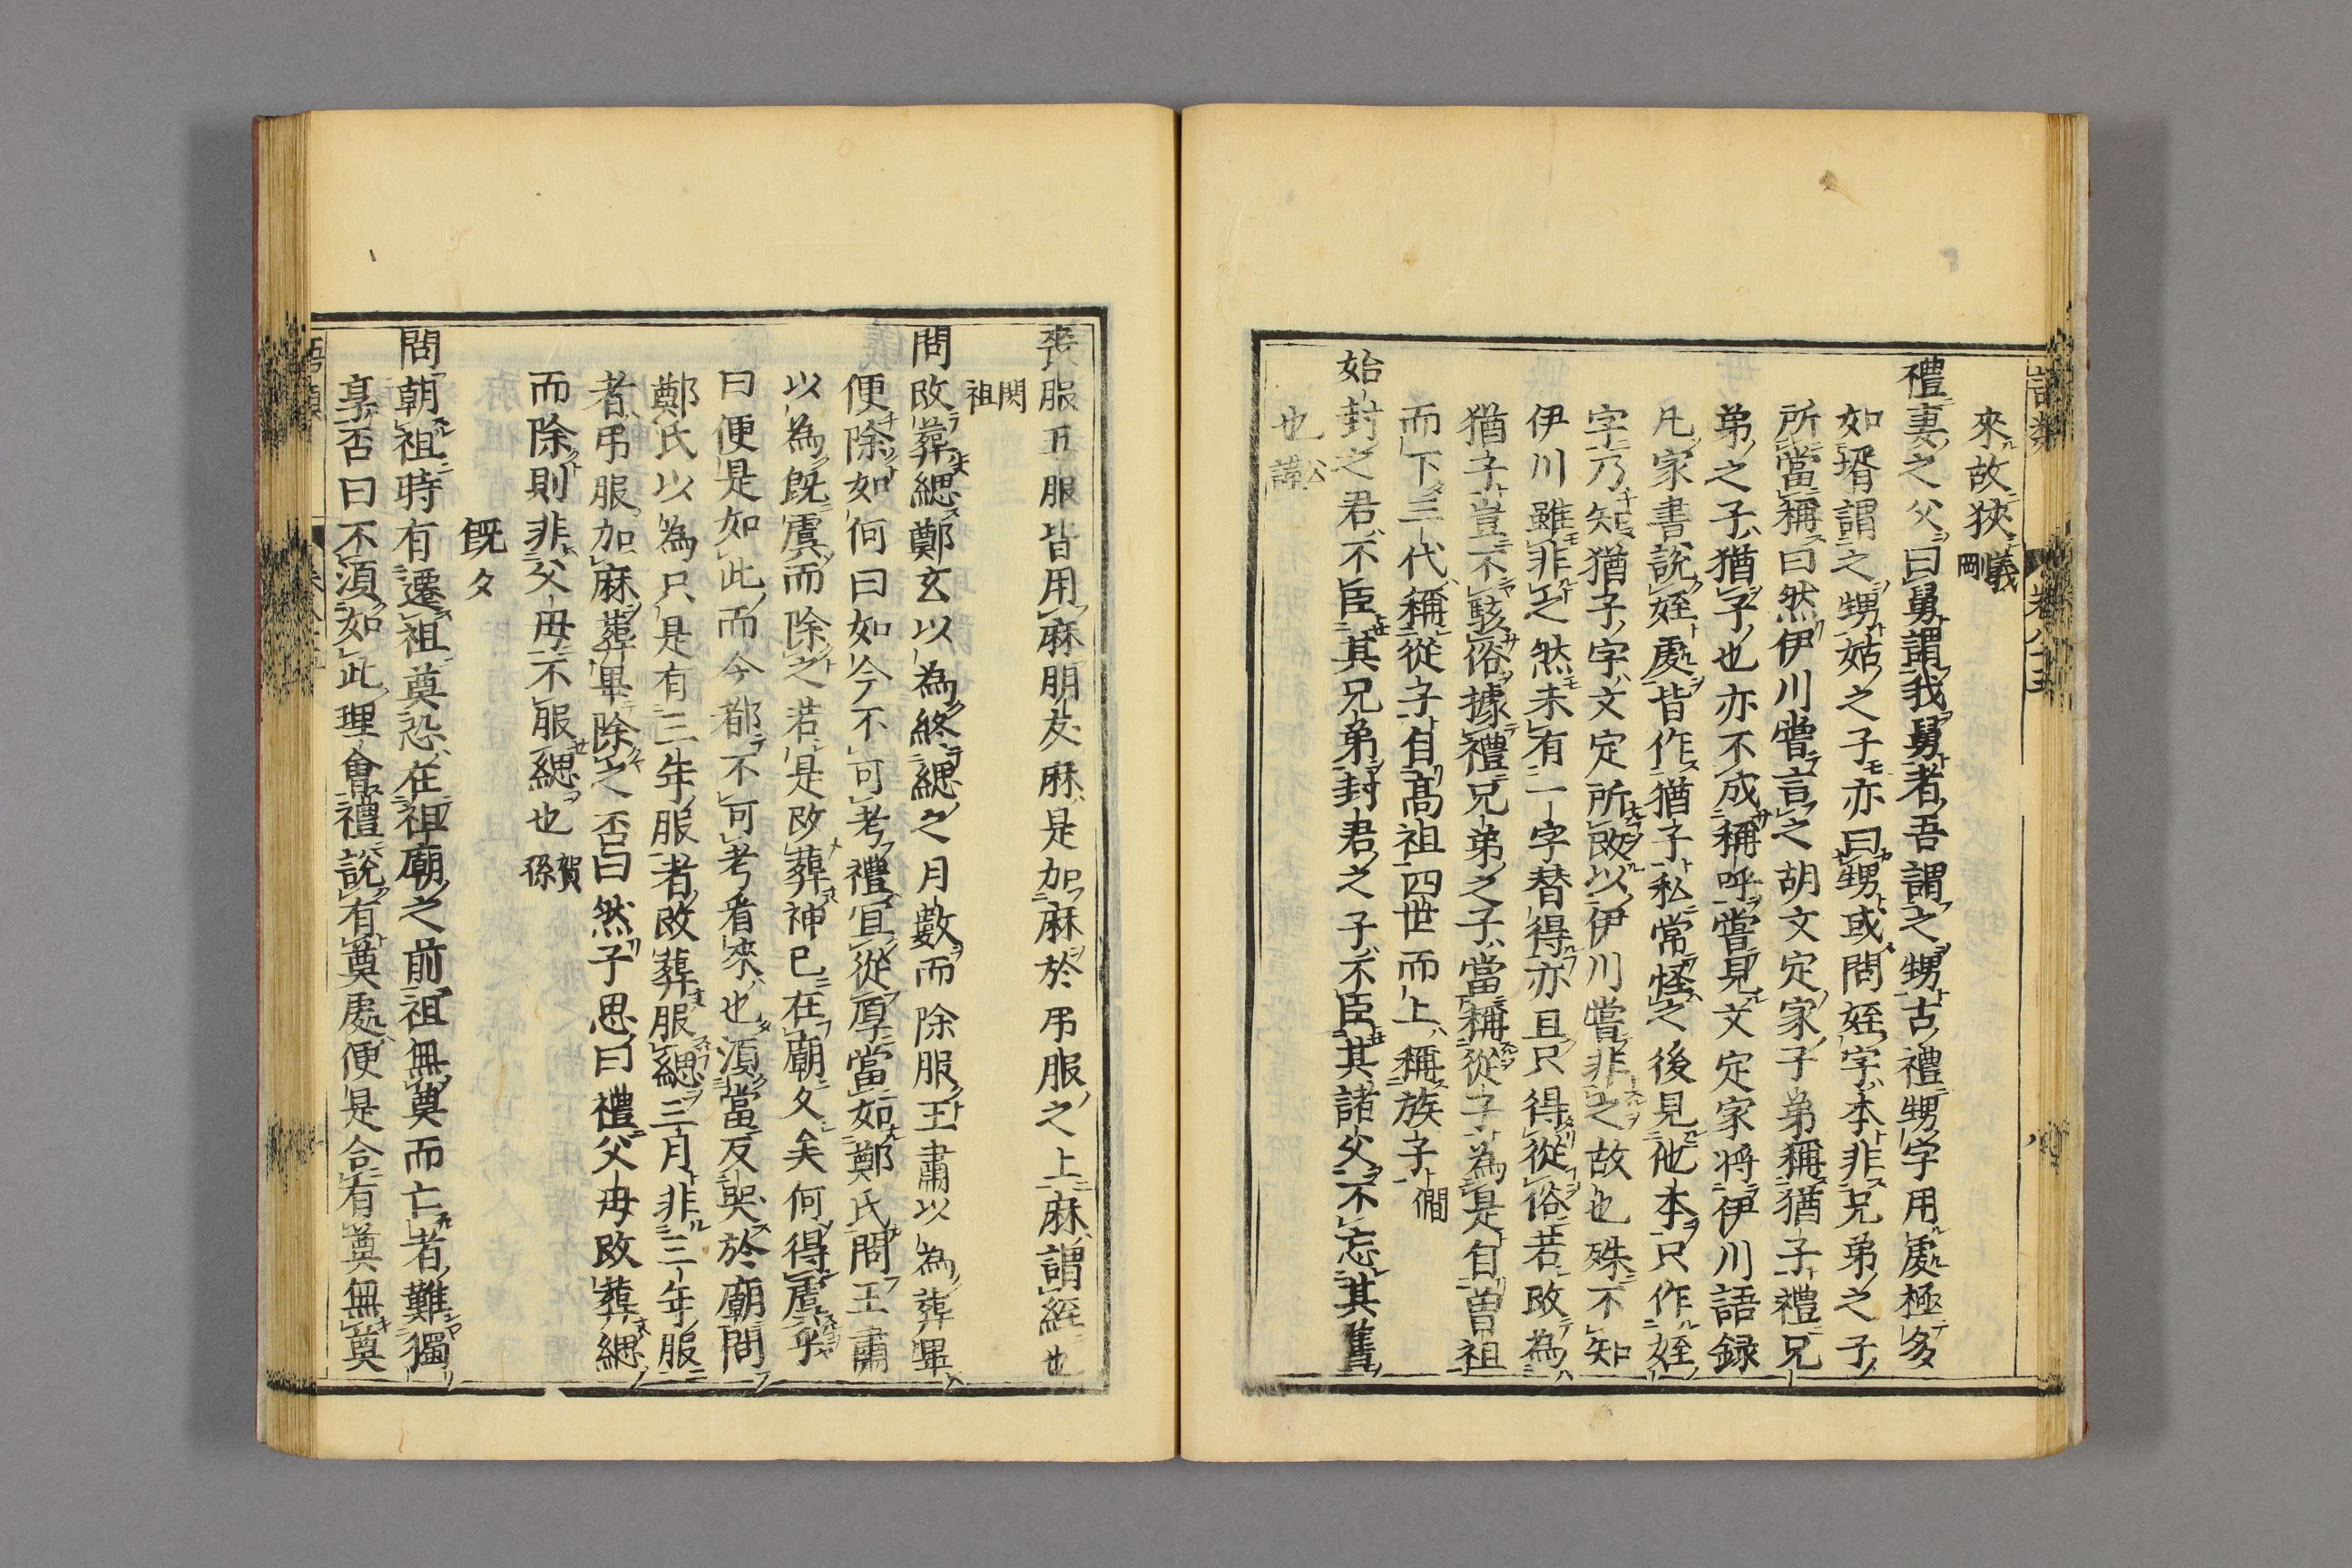 語類
卷八十五
八
來故狹義剛
禮妻之父曰舅謂我舅者吾謂之甥古禮甥字用處極多
如壻謂之甥姑之子亦曰甥或問姪字本非兄弟之子
所當稱曰然伊川嘗言之胡文定家子弟稱猶子禮兄
弟之子猶子也亦不成稱呼嘗見文定家將伊川語録
凡家書説姪處皆作猶子私常怪之後見他本只作姪
字乃知猶子字文定所改以伊川嘗非之故也殊不知
伊川雖非之然未有一字替得亦且只得從俗若改為
猶子豈不駭俗據禮兄弟之子當稱從子為是自曽祖
而下三代稱從子自髙祖四世而上稱族子僩
始封之君不臣其兄弟封君之子不臣其諸父不忘其舊
也公謹
喪服五服皆用麻朋友麻是加麻於吊服之上麻謂絰也
閎祖
問改葬緦鄭玄以為終緦之月數而除服王肅以為葬畢
便除如何曰如今不可考禮宜從厚當如鄭氏問王肅
以為既虞而除之若是改葬神已在廟久矣何得虞乎
曰便是如此而今都不可考看來也須當反哭於廟問
鄭氏以為只是有三年服者改葬服緦三月非三年服
者吊服加麻葬畢除之否曰然子思曰禮父母改葬緦
而除則非父母不服緦也賀孫
既夕
問朝祖時有遷祖奠恐在祖廟之前祖無奠而亡者難獨
享否曰不須如此理會禮說有奠處便是合有奠無奠
語類